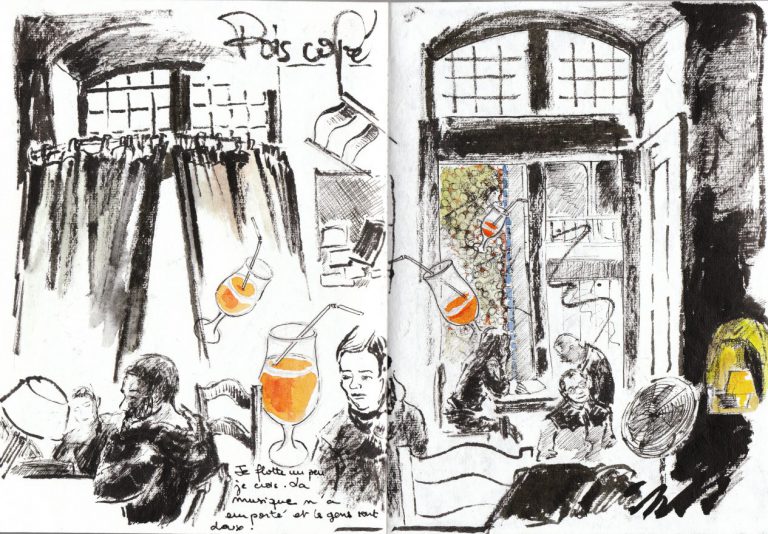 Pois café
Je flotte un peu
je crois. La
musique m'a
emporté et les gens sont
doux.